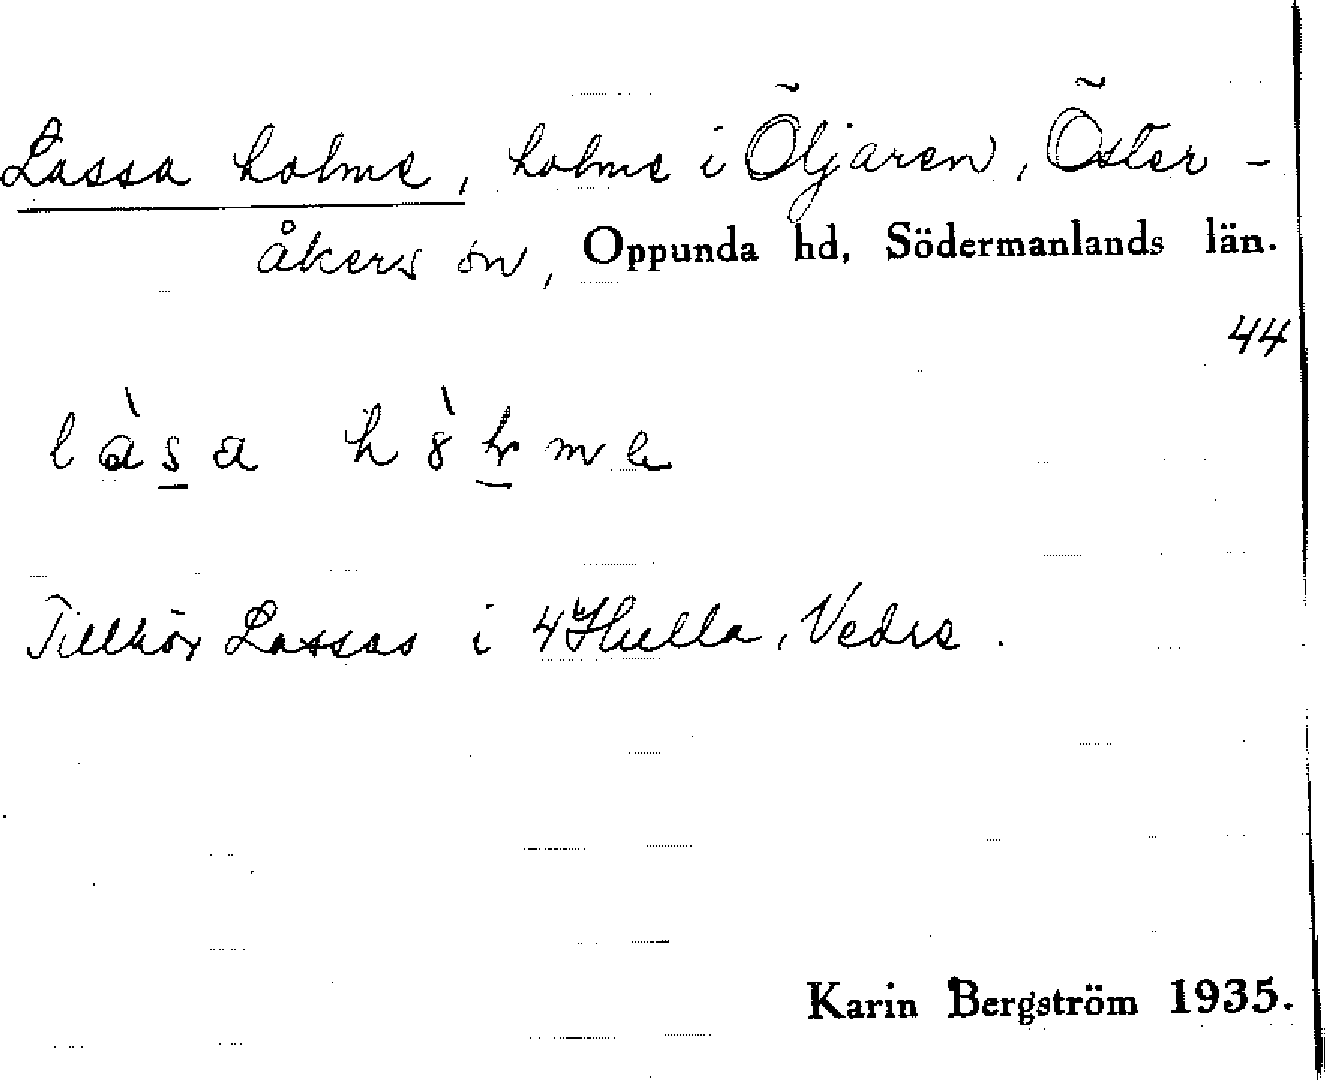 Lassa holme, holme i Öljaren, Öster-
åkers sn, Oppunda hd, Södermanlands län.
44
Tillhör Lassas i Hulla, Vedre.
Karin Bergström 1935.